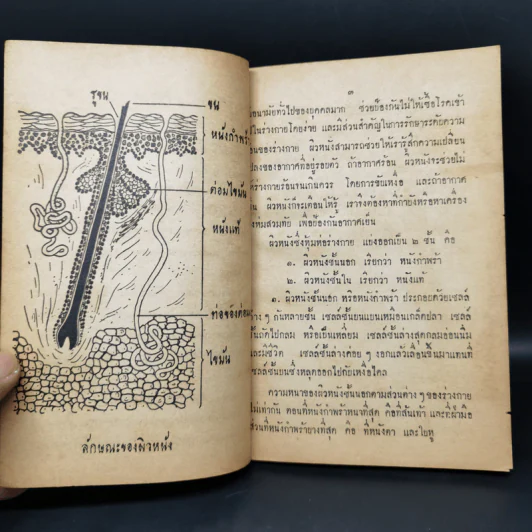 รูขน
ขน
หนังกำพร้า
ต่อมไขมัน
หนังแท้
ท่อของต่อม
ไขมัน
ลักษณะของผิวหนัง
๓
อนามัยทั่วไปของบุคคลมาก ช่วยป้องกันไม่ให้เชื้อโรคเข้า
ในร่างกายโดยง่าย และมีส่วนสำคัญในการรักษาระดับความ
ของร่างกาย ผิวหนังสามารถช่วยให้เรารู้สึกความเปลี่ยน
แปลงของอากาศที่อยู่รอบตัว ถ้าอากาศร้อน ผิวหนังจะช่วยไม่
ร่างกายร้อนจนเกินควร โดยการขับเหงื่อ และถ้าอากาศ
ผิวหนังก็จะเตือนให้รู้ เราจึงต้องหาที่กำบังหรือหาเครื่อง
ห่มสวมทับ เพื่อป้องกันอากาศเย็น
ผิวหนังซึ่งหุ้มห่อร่างกาย แบ่งออกเป็น ๒ ชั้น คือ
๑. ผิวหนังชั้นนอก เรียกว่า หนังกำพร้า
๒. ผิวหนังชั้นใน เรียกว่า หนังแท้
๑. ผิวหนังชั้นนอก หรือหนังกำพร้า ประกอบด้วยเซลล์
ต่าง ๆ กันหลายชั้น เซลล์ชั้นบนแบนเหมือนเกล็ดปลา เซลล์
ชั้นถัดไปกลม หรือเป็นเหลี่ยม เซลล์ชั้นล่างสุดกลมอ่อนนิ่ม
และมีชีวิต เซลล์ชั้นล่างค่อย ๆ งอกแล้วเลื่อนขึ้นมาแทนที่
เซลล์ชั้นบนซึ่งหลุดออกไปกับเหงื่อไคล
ความหนาของผิวหนังชั้นนอกตามส่วนต่าง ๆ ของร่างกาย
ไม่เท่ากัน ตอนที่หนังกำพร้าหนาที่สุด คือที่ส้นเท้า และที่ฝ่ามือ
ส่วนที่หนังกำพร้าบางที่สุด คือ ที่หนังตา และใบหู